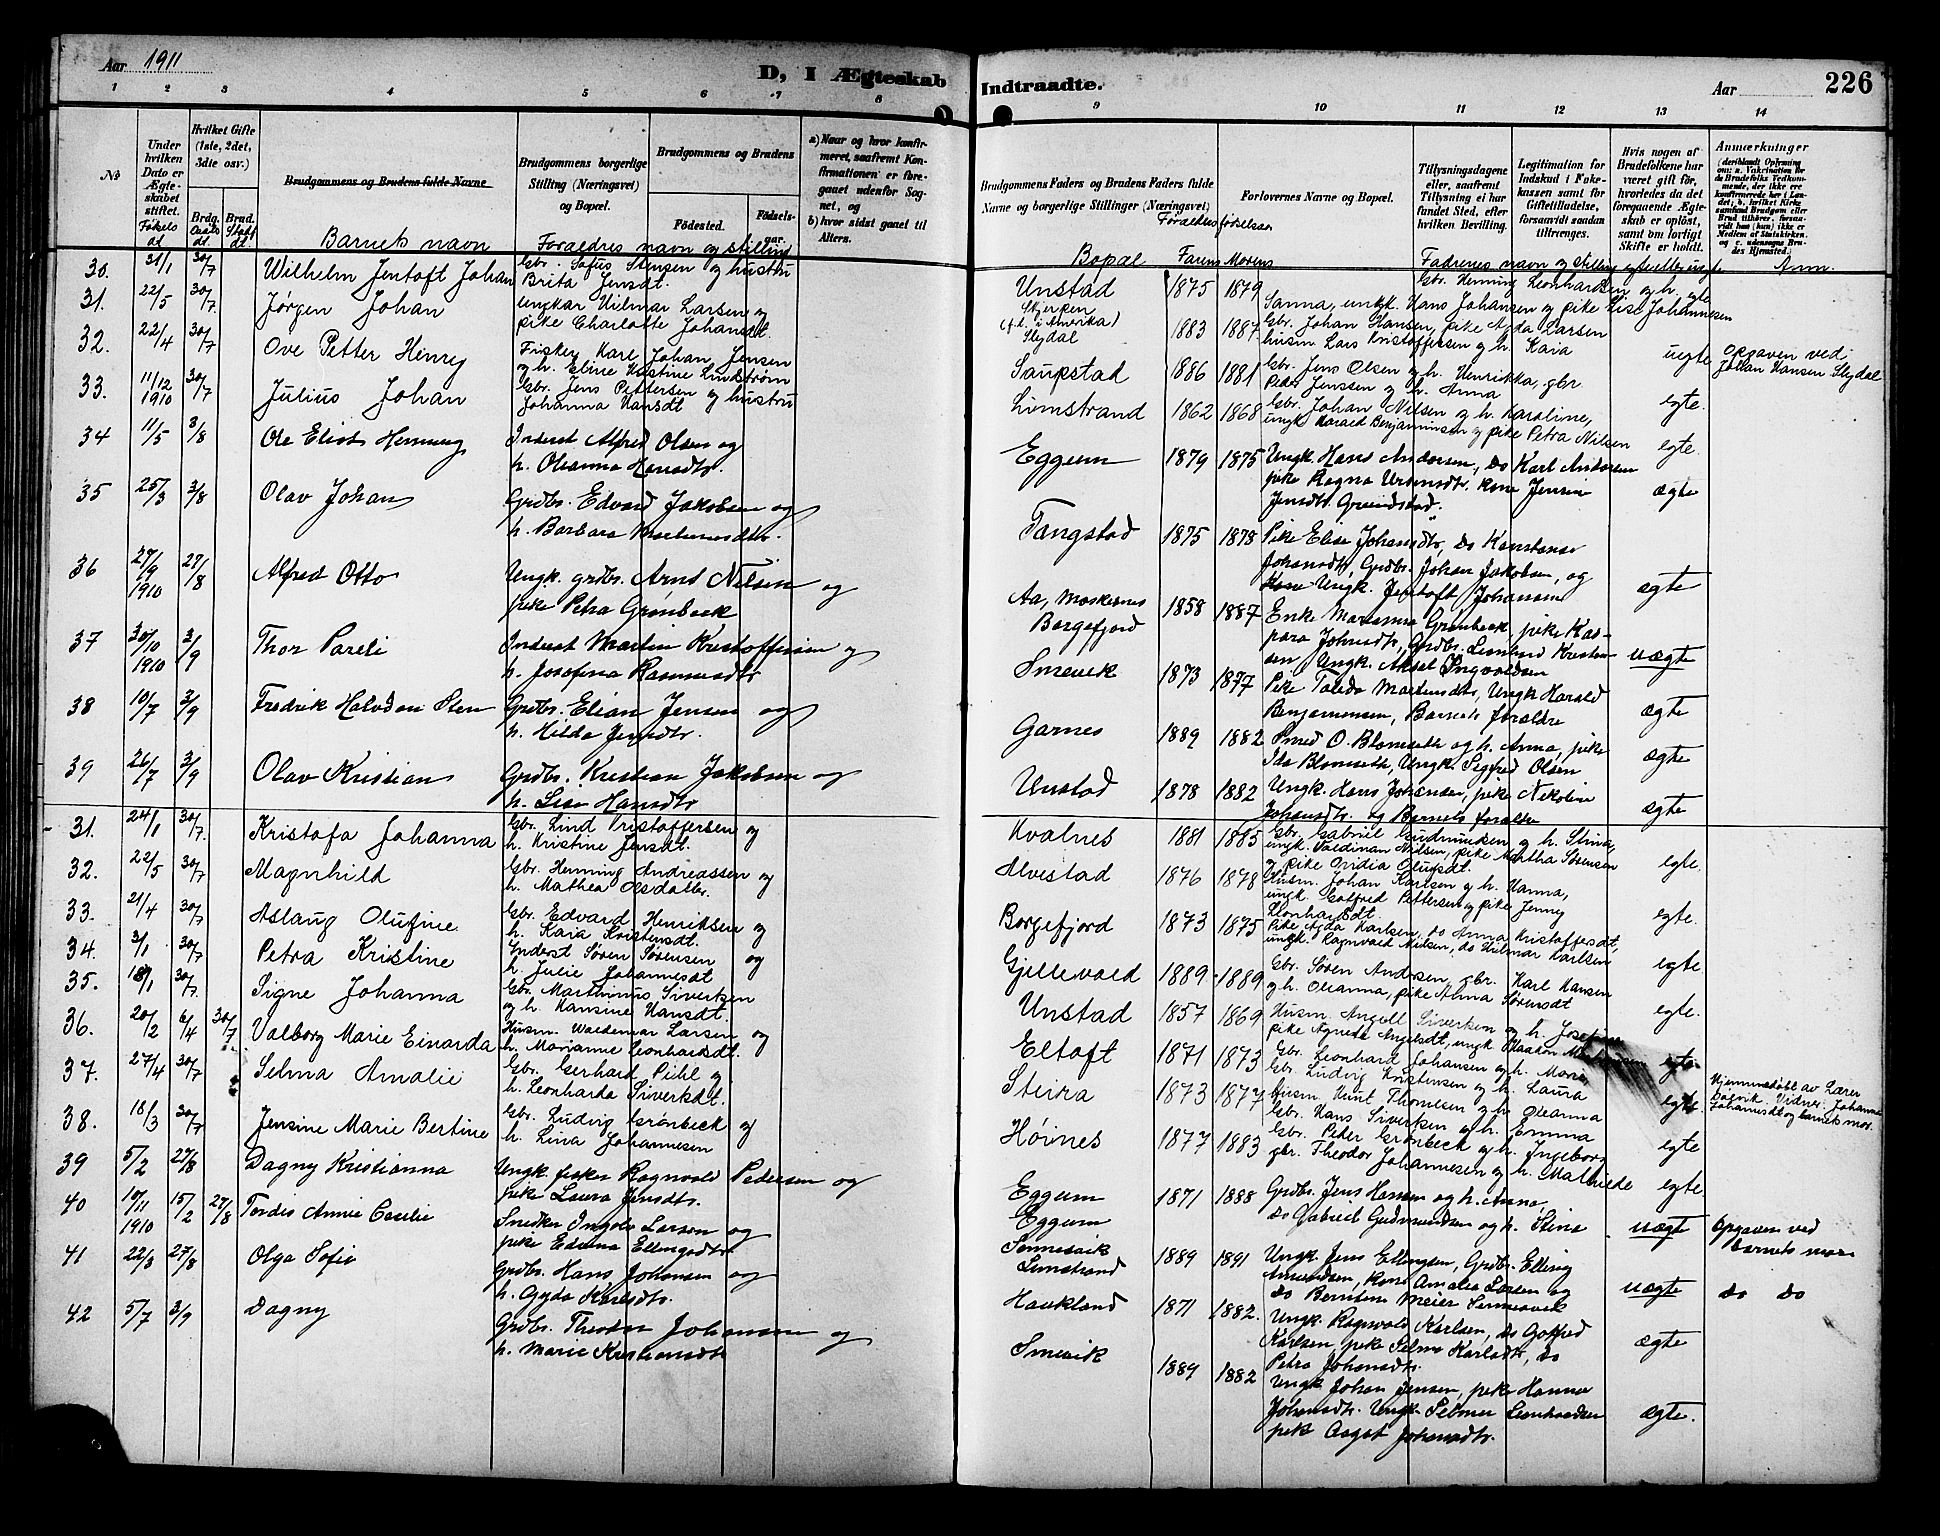 Aar 1911
D, I Ægteskab
Indtraadte.
Aar
226
1 2 3 4 5 6 7 8 9 10 11 12 13 14
No
Under hvilken Dato er Ægteskabet stiftet.
Hvilket Gifte (1ste, 2det, 3die osv.)
Brdg.
Brud.
Brudgommens og Brudens fulde Navne
Brudgommens borgerlige Stilling (Næringsvei) og Bopæl.
Brudgommens og Brudens
Fødested.
Fødsels-aar.
a) Naar og hvor konfirmeret, saafremt Konfirmationen er foregaaet udenfor Sognet, og
b) hvor sidst gaaet til Alters.
Brudgommens Faders og Brudens Faders fulde Navne og borgerlige Stillinger (Næringsvei)
Forlovernes Navne og Bopæl.
Tillysningsdagene eller, saafremt Tillysning ei har fundet Sted, efter hvilken Bevilling.
Legitimation for Indskud i Enkekassen samt for Giftetilladelse, forsaavidt saadan tiltrænges.
Hvis nogen af Brudefolkene har været gift før, hvorledes da det foregaaende Ægteskab er opløst, samt om lovligt Skifte er holdt.
Anmærkninger
Barnets navn
Foraldres navn og stilling
Bopæl Farens Morens
Fadrenes navn og stilling egte eller uegte Anm.
30. 31/1 30/7 Wilhelm Jentoft Johan Gbr. Sofus Stensen og hustru
Brita Jensdt.
Unstad 1875 1879 Gbr. Henning Leonhardsen og h. egte
Sanna, ungk. Hans Johansen og pike Lise Johannesen
31. 22/5 30/7 Jørgen Johan ungkar Hilmar Larsen og
pike Charlotte Johansdt.
Skjerpen
(f.t. i Amerika)
Slydal 1883 1887 Gbr. Johan Hansen, pike Agda Larsen
husm Lars Kristoffersen og h. Kaia uegte Opgaven ved
Johan Hansen Slydal
32. 22/4 30/7 Ove Petter Henry Fisker Karl Johan Jensen
og h. Eline Kristine Lindstrøm
Saupstad 1886 1881 Gbr. Jens Olsen og h. Henrikka, gbr.
Peder Jenssen og h. Anna egte.
33. 11/12 1910 30/7 Julius Johan Gbr. Jens Pettersen og hustru
Johanna Hansdt
Limstrand 1862 1868 Gbr. Johan Nilsen og h. Karoline,
ungk Harald Benjaminsen og pike Petra Nilsen egte.
34 11/5 3/8 Ole Eliot Henning Inderst Alfred Olsen og
h. Oleanna Hansdtr.
Eggum 1879 1875 Ungk. Hans Andersen, do Karl Andersen
pike Ragna kone Jensine
Jensdt. Grundstad. ægte
35 25/3 3/8 Olav Johan Grdbr. Edvard Jakobsen og
h. Barbara Martinusdtr.
Tangstad 1875 1878 Pike Elise Johansdtr, do Konstanse
Johansdt, Grdbr. Johan Jakobsen, og
Ungk. Jentoft Johansen ægte
36 27/9 1910 27/8 Alfred Otto Ungk. grdbr. Arnt Nilsen og
pike Petra Grønbeck
Aa, Moskenes
Borgefjord 1858 1887 Enke Marianna Grønbeck, pike Kas-
para Johnsdt, Grdbr. Leonhard Kristen-
sen, Ungk. Aksel Ingvaldsen uægte
37 30/10 1910 3/9 Thor Pareli Inderst Martin Kristoffersen og
h. Josefina Rasmusdtr
Smevik 1873 1877 Pike Toleda Martinsdtr, Ungk Harald
Benjaminsen, Barnets foraldre ægte
38 10/7 3/9 Fredrik Halvdan Sten Grdbr. Elian Jensen og
h. Hilda Jensdtr.
Garnes 1889 1882 Smed O. Blomseth og h. Anna, pike
Ida Blomseth, Ungk. Sigfred Olsen ægte
39 26/7 3/9 Olav Kristian Grdbr. Kristian Jakobsen og
h. Lise Hansdtr
Unstad 1878 1882 Ungk. Hans Johansen, pike Nikoline
Johansdt. og Barnets foraldre ægte
31. 24/1 30/7 Kristofa Johanna Gbr. Lind Kristoffersen og
h. Kristine Jensdt.
Kvalnes 1881 1885 Gbr. Gabriel Gudmundsen og h. Stina,
ungk. Valdimar Nilsen, pike Martha Sørensen
og pike Ovidia Olufsdt. egte.
32. 22/5 30/7 Magnhild Gbr. Henning Andreassen og
h. Mathea Olsdatter.
Alvestad 1876 1878 Husm. Johan Karlsen og h. Hanna,
ungk. Gotfred Pettersen og pike Jenny
Leonhardsdt. egte.
33. 21/4 30/7 Aslaug Olufine Gbr. Edvard Henriksen og
h. Kaia Kristensdt.
Borgefjord 1873 1875 Pike Agda Karlsen, do Anna Kristoffersdt,
ungk. Ragnvald Nielsen, do Hilmar Karlsen egte
34. 3/1 30/7 Petra Kristine Inderst Søren Sørensen og
h. Julie Johannesdt
Gjellevold 1889 1889 Gbr. Søren Andersen, gbr. Karl Hansen
og h. Oleanna, pike Alma Sørensdt egte.
35. 18/1 30/7 Signe Johanna Gbr. Marthinus Sivertsen
og h. Hansine Hansdt.
Unstad 1857 1869 Husm. Angell Sivertsen og h. Josefine
pike Agneda Angelsdt, ungk. Haakon egte
36. 20/2 6/4 30/7 Valborg Marie Einarda Husm. Waldemar Larsen og
h. Marianne Leonhardsdt.
Eltoft 1871 1873 Gbr. Leonhard Johansen og h. Marie,
Gbr. Ludvig Kristensen og h. Laura egte Hjemmedøbt av Lærer
Dalvik. Vidner: Johanna
Johannesdt og barnets mor.
37. 27/4 30/7 Selma Amalie Gbr. Gerhard Pihl og
h. Leonharda Sivertsdt.
Steira 1873 1877 husm. Knut Thomesen og h. Oleanna
Gbr. Hans Sivertsen og h. Emma egte
38. 18/3 30/7 Jensine Marie Bertine Gbr. Ludvig Grønbeck og
h. Lina Johannesen
Høines 1877 1883 Gbr. Peder Grønbeck og h. Ingeborg
gbr. Theodor Johannesen og h. Mathilde egte
39 5/2 27/8 Dagny Kristianna Ungk. fisker Ragnvald Pedersen og
pike Laura Jensdtr.
Eggum
Eggum 1871 1888 Grdbr. Jens Hansen og h. Anna
do Gabriel Gudmundsen og h. Stina uægte Opgaven ved
barnets mor
40 10/11 1910 15/2 27/8 Tordis Annie Cecilie Snedker Ingolv Larsen og
pike Edvina Ellingsdtr.
Sennesvik
Limstrand 1889 1891 Ungk. Jens Ellingsen, Grdbr. Elling
Amundsen, kone Amalia Larsen og
do Berntine Meier Sennesvik uægte do do
41 22/3 27/8 Olga Sofie Grdbr. Hans Johansen og
h. Gyda Karlsdtr.
Haukland 1871 1882. Ungk. Ragnvald Karlsen, do Gotfred
Karlsen, pike Selma Karlsdtr, do
Petra Johansdtr. ægte
42 5/7 3/9 Dagny Grdbr. Theodor Johansen og
h. Marie Kristiansdtr
Smevik 1889 1882 Ungk Johan Jensen, pike Hanna
Johansdtr. Ungk. Selmer Leonhardsen
pike Aagot Johansdtr. ægte.